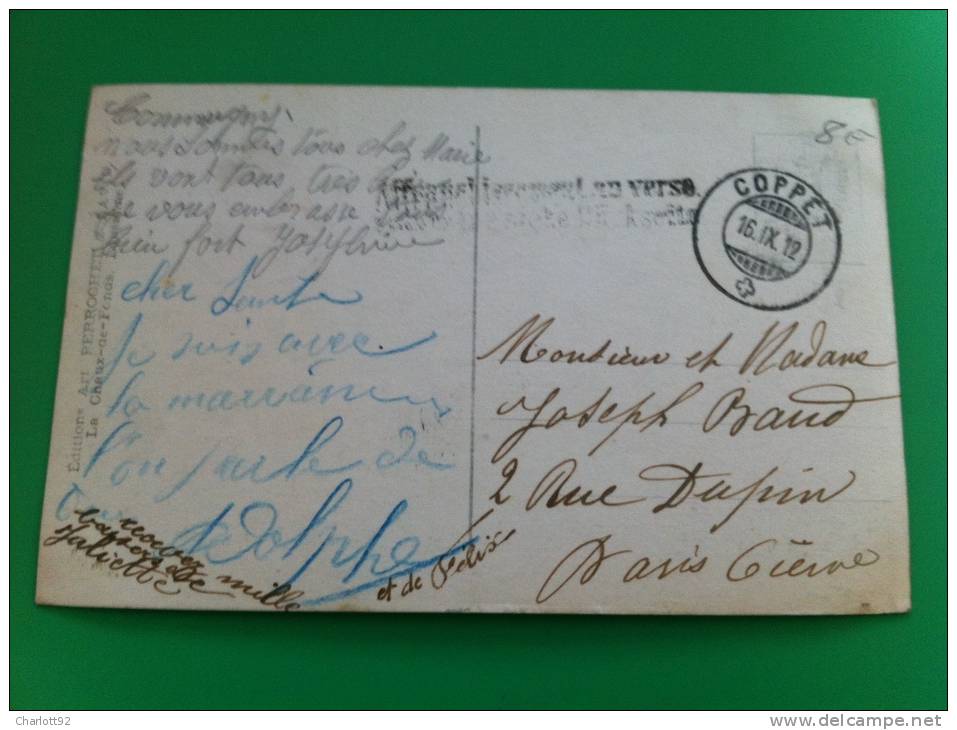 Commugny.
nous sommes tous chez Marie
ils vont tous très bien
je vous embrasse tous
bien fort Joséphine
cher
je suis avec
ta marraine
l'on parle de
toi Adolphe
et de Félix
recevez mille
baisers de
Juliette
Editions Art PERROCHET
La Chaux-de-Fonds
Affranchissement au verso.
COPPET
16.IX.12
8€
Monsieur et Madame
Joseph Baud
2 Rue Dupin
Paris 6ième
Charlott92
http://www.delcampe.net